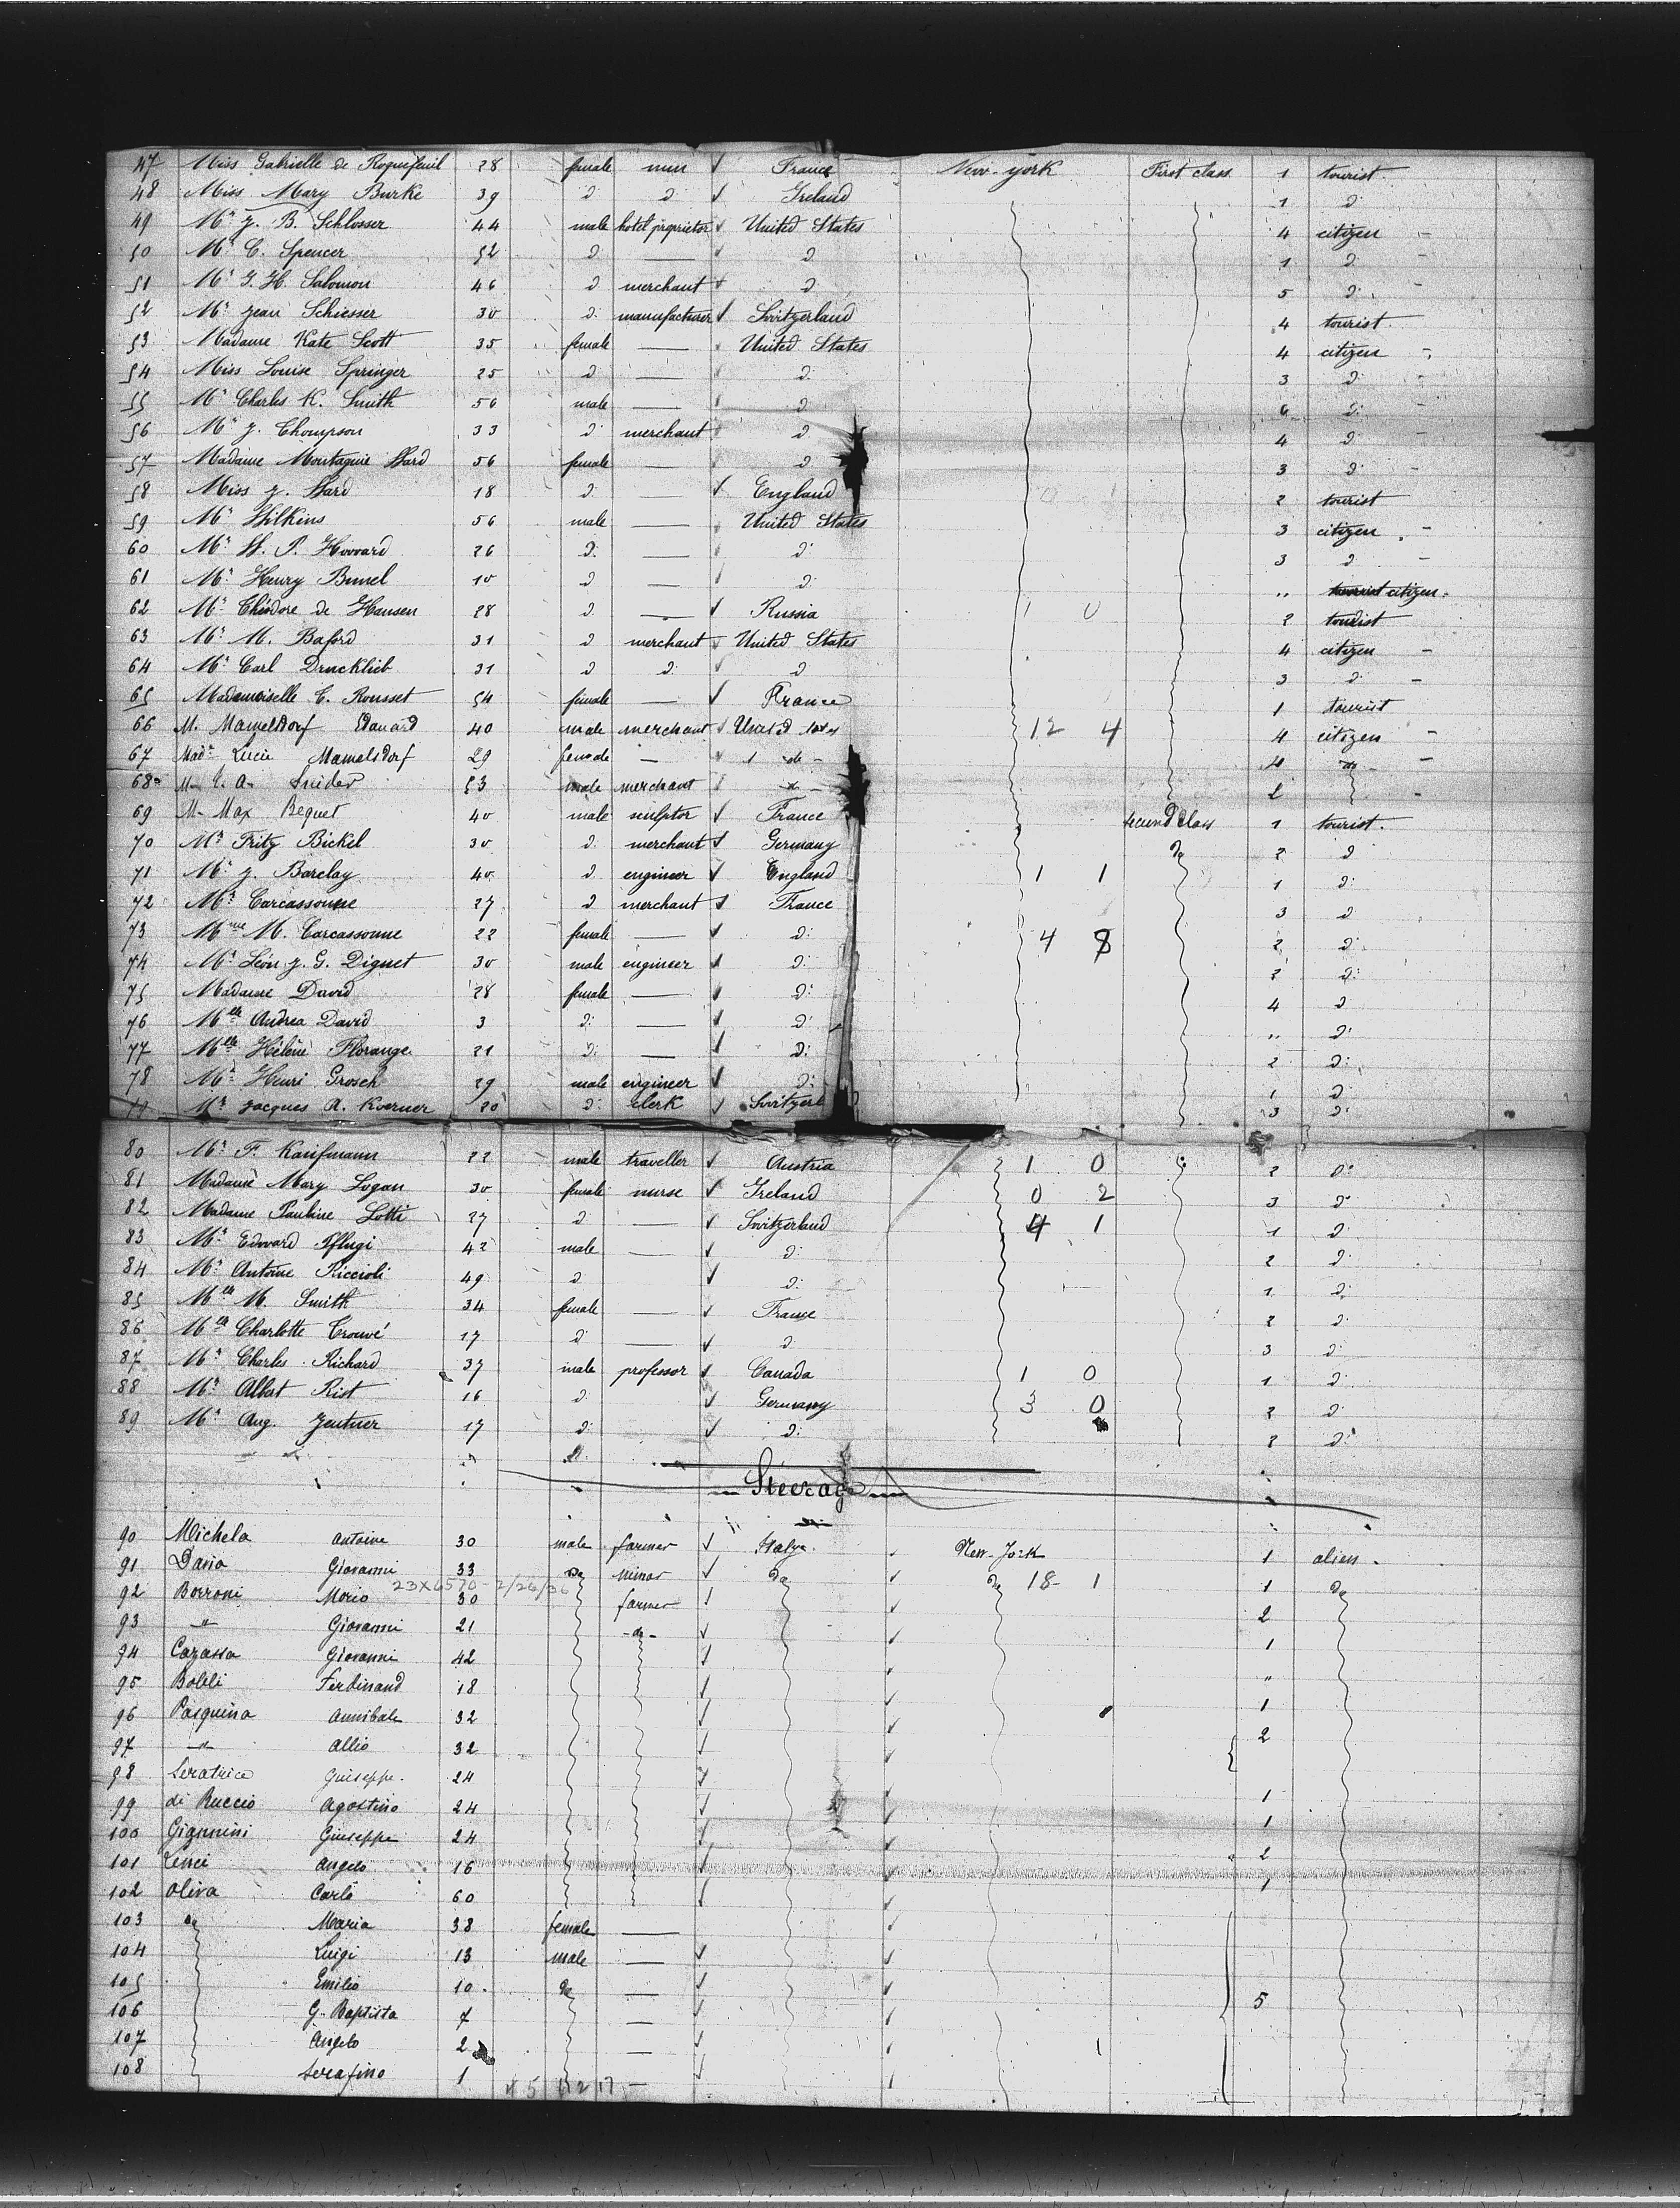 47 Miss Gabrielle de Roquefeuil 28 female nun ✓ France New-york First class 1 tourist
48 Miss Mary Burke 39 d d ✓ Ireland 1 d
49 Mr J. B. Schlosser 44 male hotel proprietor ✓ United States 4 citizen -
50 Mr C. Spencer 52 d — d 1 d -
51 Mr G. H. Salomon 46 d merchant ✓ d 5 d
52 Mr Jean Schiesser 30 d manufacturer ✓ Switzerland 4 tourist
53 Madame Kate Scott 35 female — United States 4 citizen -
54 Miss Louise Springer 25 d — d 3 d -
55 Mr Charles K. Smith 56 male — d 6 d -
56 Mr J. Thompson 33 d merchant d 4 d -
57 Madame Montague Ward 56 female — d 3 d -
58 Miss J. Ward 18 d — ✓ England 2 tourist
59 Mr Wilkins 56 male — United States 3 citizen -
60 Mr W. P. Howard 26 d — d 3 d -
61 Mr Henry Bunel 10 d — d " tourist citizen
62 Mr Théodore de Hansen 28 d — ✓ Russia 1 0 2 tourist
63 Mr M. Baford 31 d merchant ✓ United States 4 citizen -
64 Mr Carl Drucklieb 31 d d ✓ d 3 d -
65 Mademoiselle C. Rousset 54 female — ✓ France 1 tourist
66 M. Mamelsdorf Edouard 40 male merchant ✓ United States 12 4 4 citizen -
67 Made Lucie Mamelsdorf 29 female — do - 4 do -
68 M. Snider 53 male merchant 2 -
69 M. Max Bequet 40 male sculptor ✓ France second class 1 tourist.
70 Mr Fritz Bickel 30 d merchant ✓ Germany do 2 d
71 Mr J. Barclay 40 d engineer ✓ England 1 1 1 d
72 Mr Carcassonne 27 d merchant ✓ France 3 d
73 Mme M. Carcassonne 22 female — ✓ d 4 8 2 d
74 Mr Léon J. G. Diguet 30 male engineer ✓ d 2 d
75 Madame David 28 female — ✓ d 4 d
76 Melle Andrea David 3 d — ✓ d " d
77 Melle Hélène Florange 21 d — ✓ d 2 d
78 Mr Henri Grosch 29 male engineer ✓ d 1 d
Mr Jacques A. Koerner 20 d clerk ✓ Switzerl 3 d
80 Mr F. Kaufmann 22 male traveller ✓ Austria 1 0 2 d
81 Madame Mary Logan 30 female nurse ✓ Ireland 0 2 3 d
82 Madame Pauline Lotti 27 d — ✓ Switzerland 4 1 1 d
83 Mr Edward Pflugi 42 male — ✓ d 2 d
84 Mr Antoine Riccioli 49 d ✓ d 1 d
85 Melle M. Smith 34 female — ✓ France 2 d
86 Melle Charlotte Trouvé 17 d — ✓ d 3 d
87 Mr Charles Richard 37 male professor ✓ Canada 1 0 1 d
88 Mr Albert Rist 16 d ✓ Germany 3 0 2 d
89 Mr Aug. Zentner 17 d ✓ d 2 d
Steerage
90 Michela Antoine 30 male farmer ✓ Italy New-York 1 alien
91 Dario Giovanni 33 do miner ✓ do ✓ do 18- 1 1 do
23X6570-2/26/36
92 Borroni Mario 30 farmer ✓ ✓ 2
93 -"- Giovanni 21 -do- ✓ ✓ 1
94 Cazassa Giovanni 42 ✓ ✓ "
95 Bolli Ferdinand 18 ✓ ✓ 1
96 Pasquina Annibale 32 ✓ ✓ 2
97 -"- Allio 32 ✓ ✓
98 Seratrice Guiseppe 24 ✓ ✓ 1
99 di Ruccio Agostino 24 ✓ ✓ 1
100 Giannini Giuseppe 24 ✓ ✓ 2
101 Lenci Angelo 16 ✓ ✓ 1
102 Oliva Carlo 60 ✓ ✓
103 do Maria 38 female — ✓
104 Luigi 13 male — ✓ ✓
105 Emilio 10 do — ✓ ✓ 5
106 G. Baptista 7 — ✓ ✓
107 Angelo 2 — ✓ ✓ 1
108 Serafino 1 — ✓ ✓